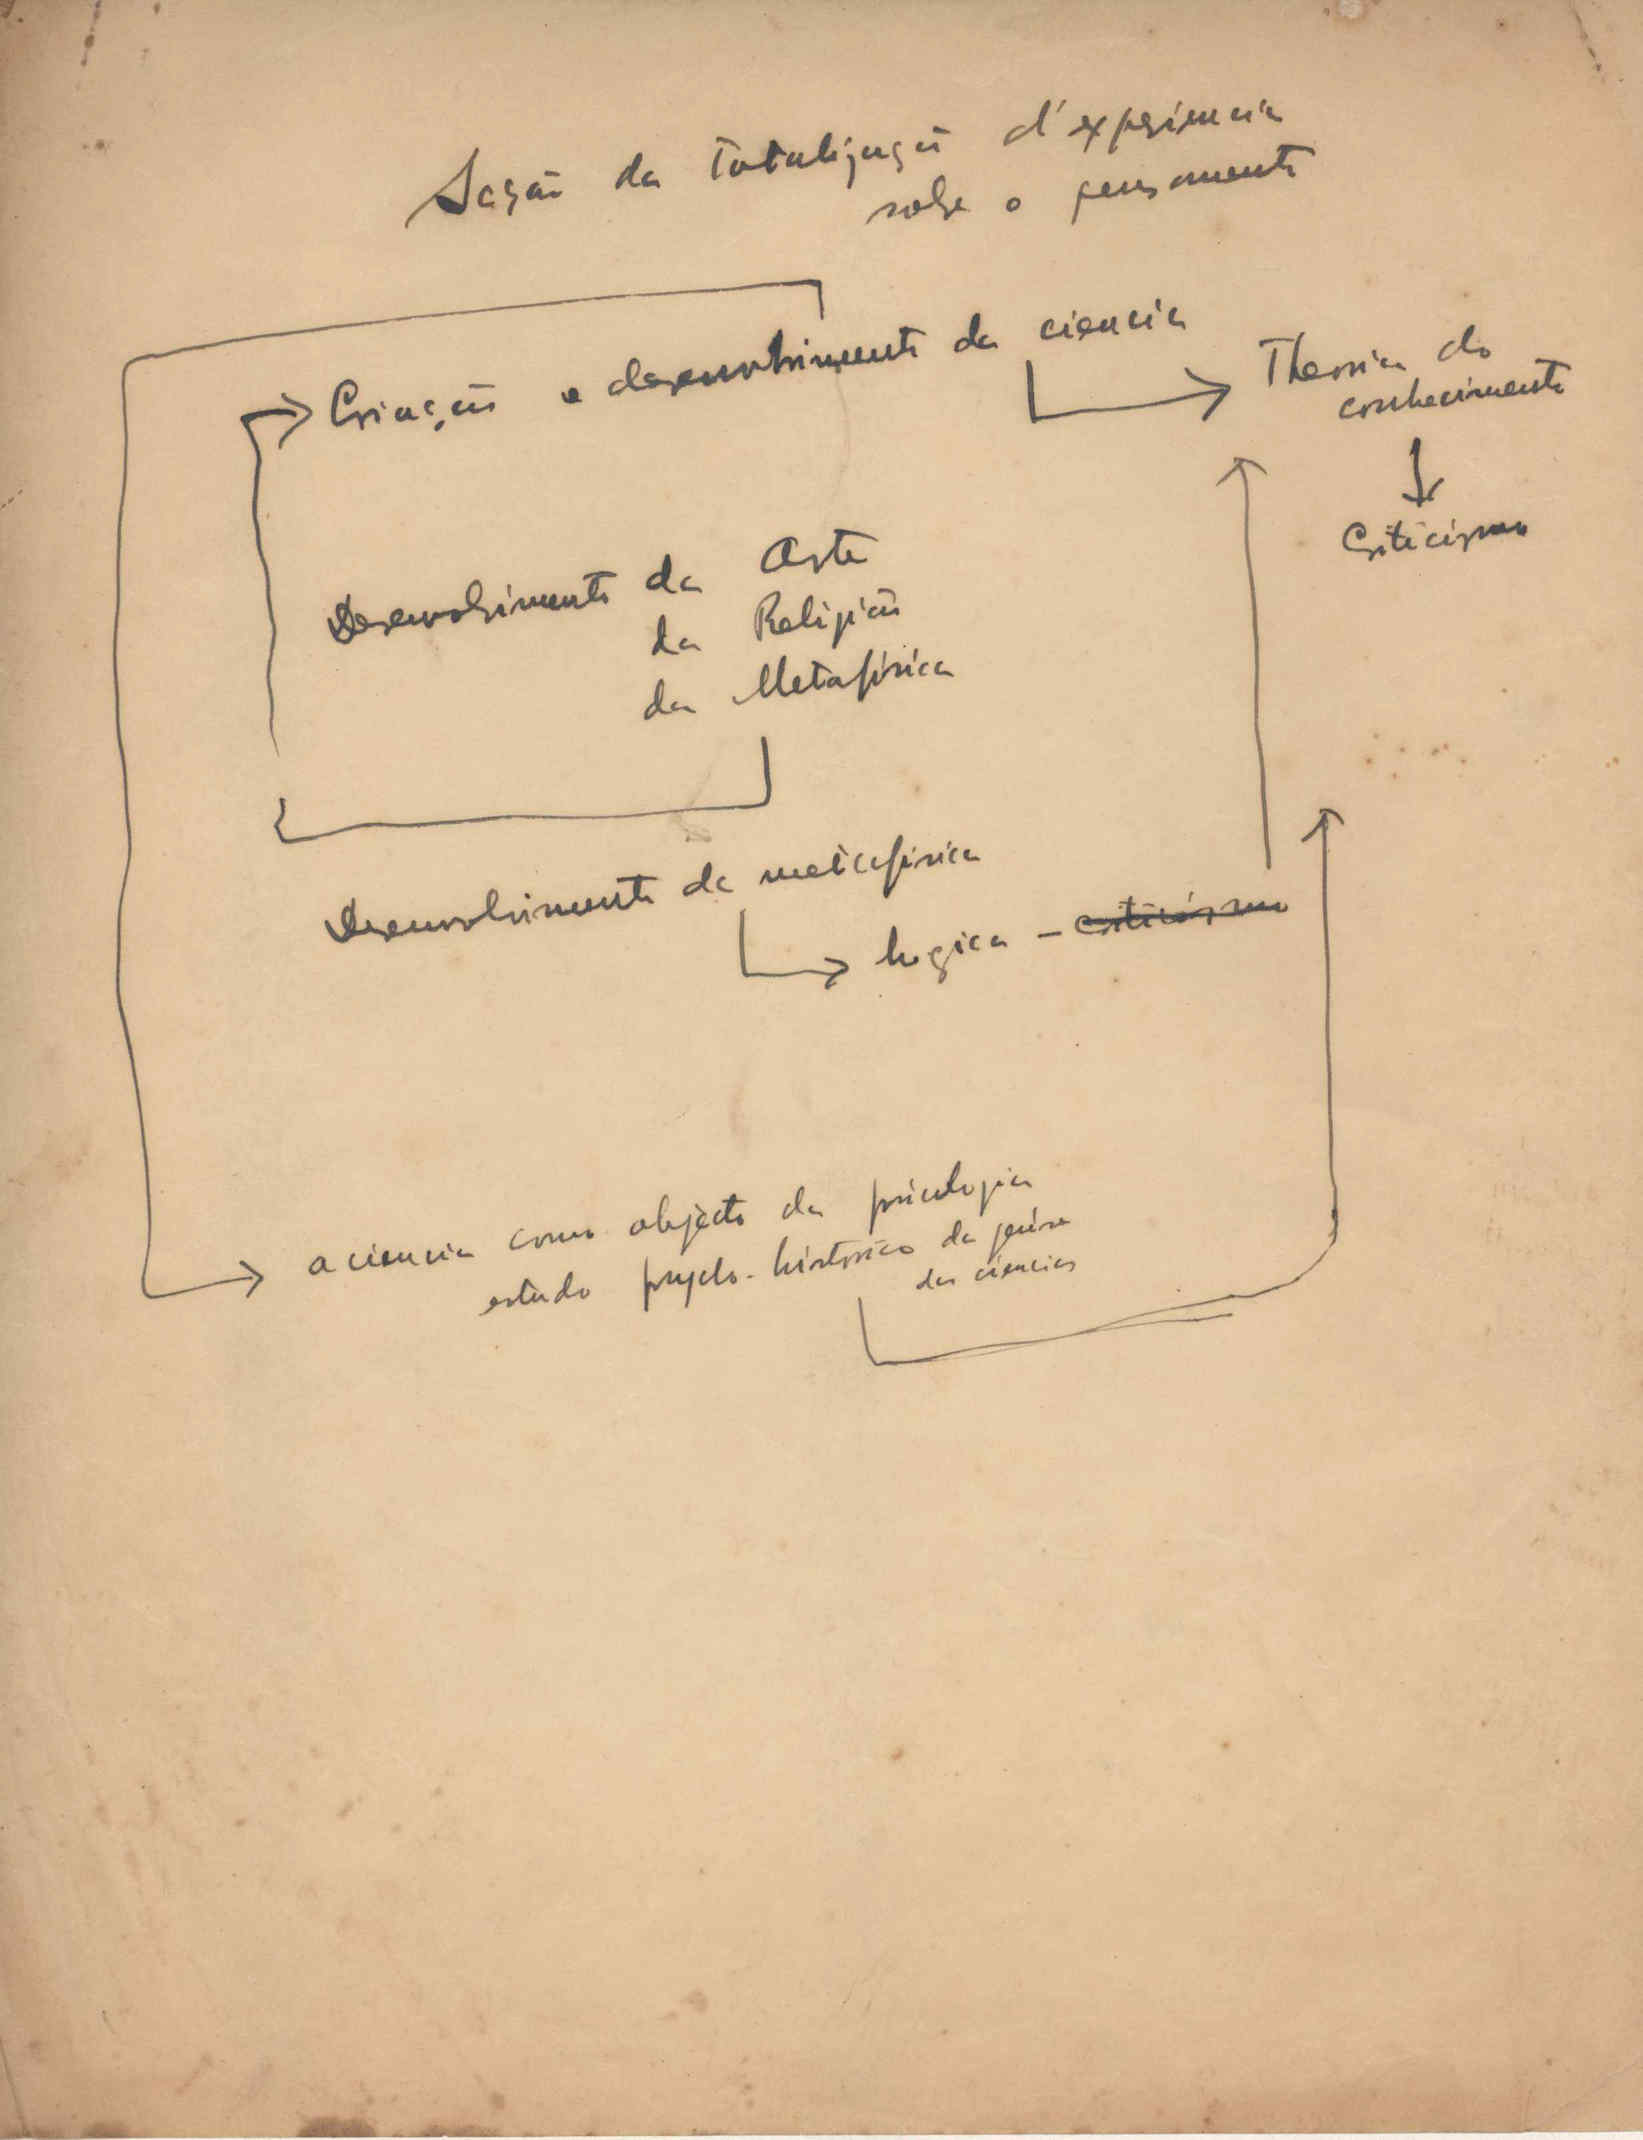 Acção da totalização d'experiencia
sobre o pensamento
Criação e desenvolvimento da ciencia
Theoria do
conhecimento
Criticismo
Desenvolvimento da Arte
da Religião
da Metafisica
Desenvolvimento da metafisica
logica - criticismo
a ciencia como objecto da psicologia
estudo psyclo-historico da genese
das ciencias